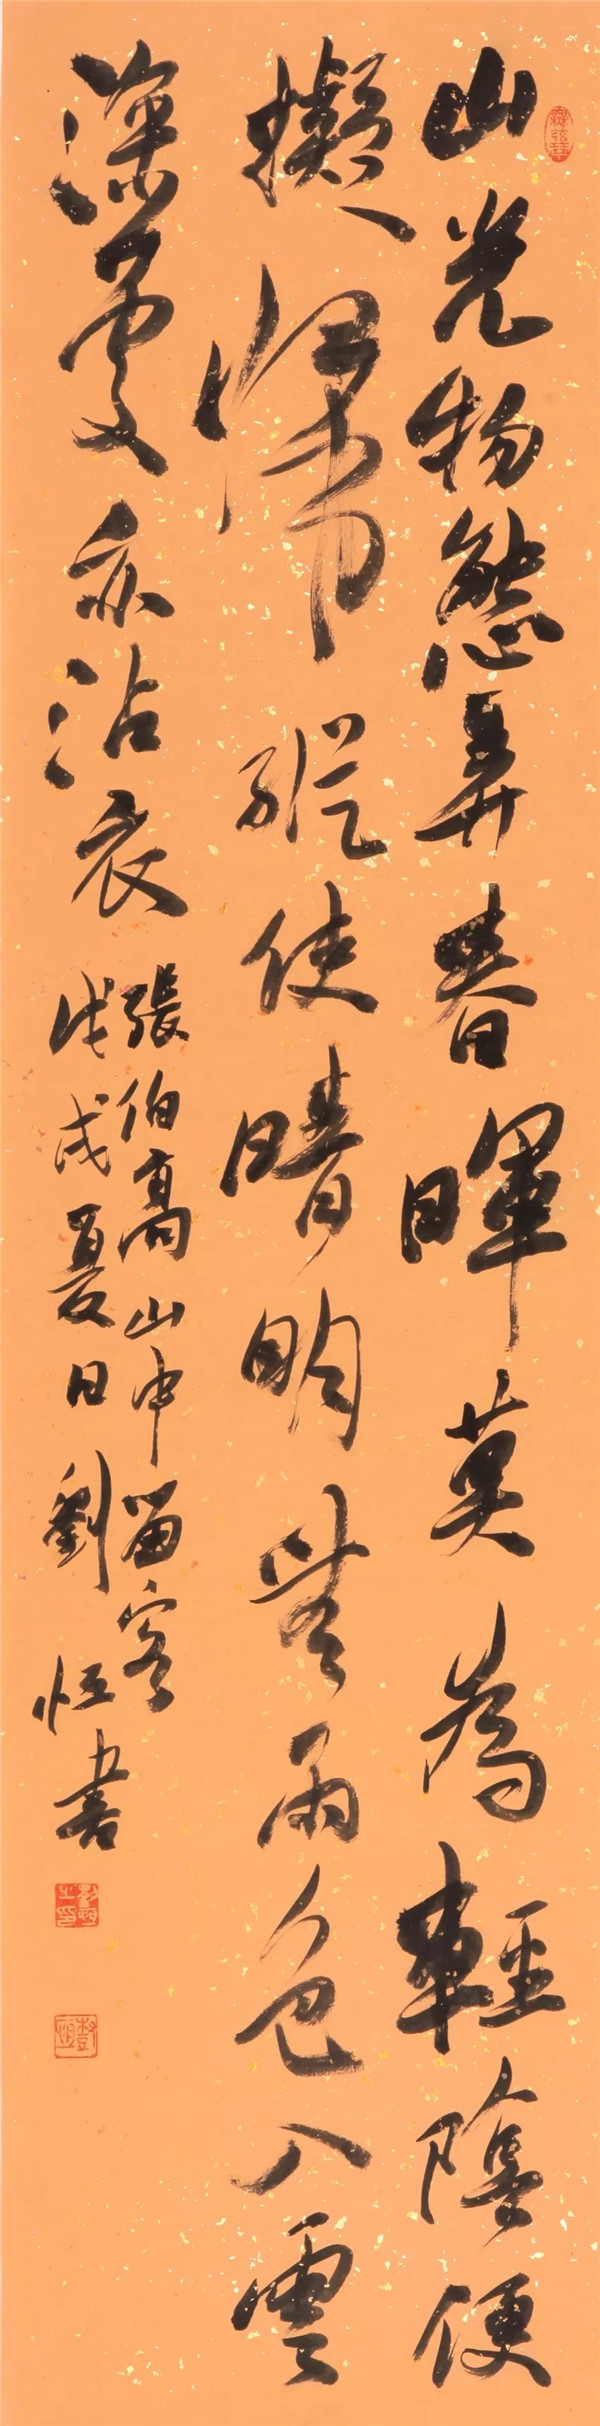 山光物態弄春暉莫為輕陰便
擬歸縱使晴明無雨色入雲
深處亦沾衣
張伯高山中留客
戊戌夏日劉恒書